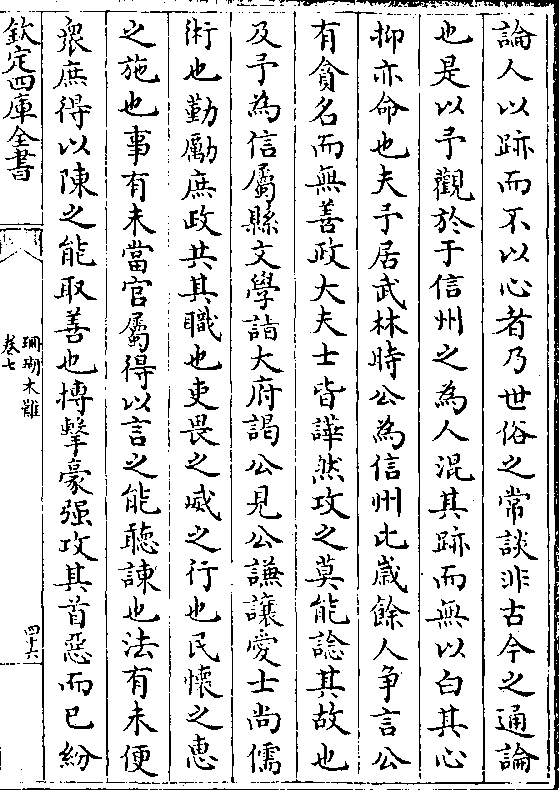 論人以跡而不以心者乃世俗之常談非古今之通論
也是以予觀於于信州之為人混其跡而無以白其心
抑亦命也夫予居武林時公為信州比歲餘人争言公
有貪名而無善政大夫士皆譁然攻之莫能諗其故也
及予為信屬縣文學詣大府謁公見公謙讓愛士尚儒
術也勤勵庶政共其職也吏畏之威之行也民懷之恵
之施也事有未當官屬得以言之能聽諫也法有未便
衆庶得以陳之能取善也摶擊豪强攻其首惡而已紛
欽定四庫全書
珊瑚木難
卷七
四十六